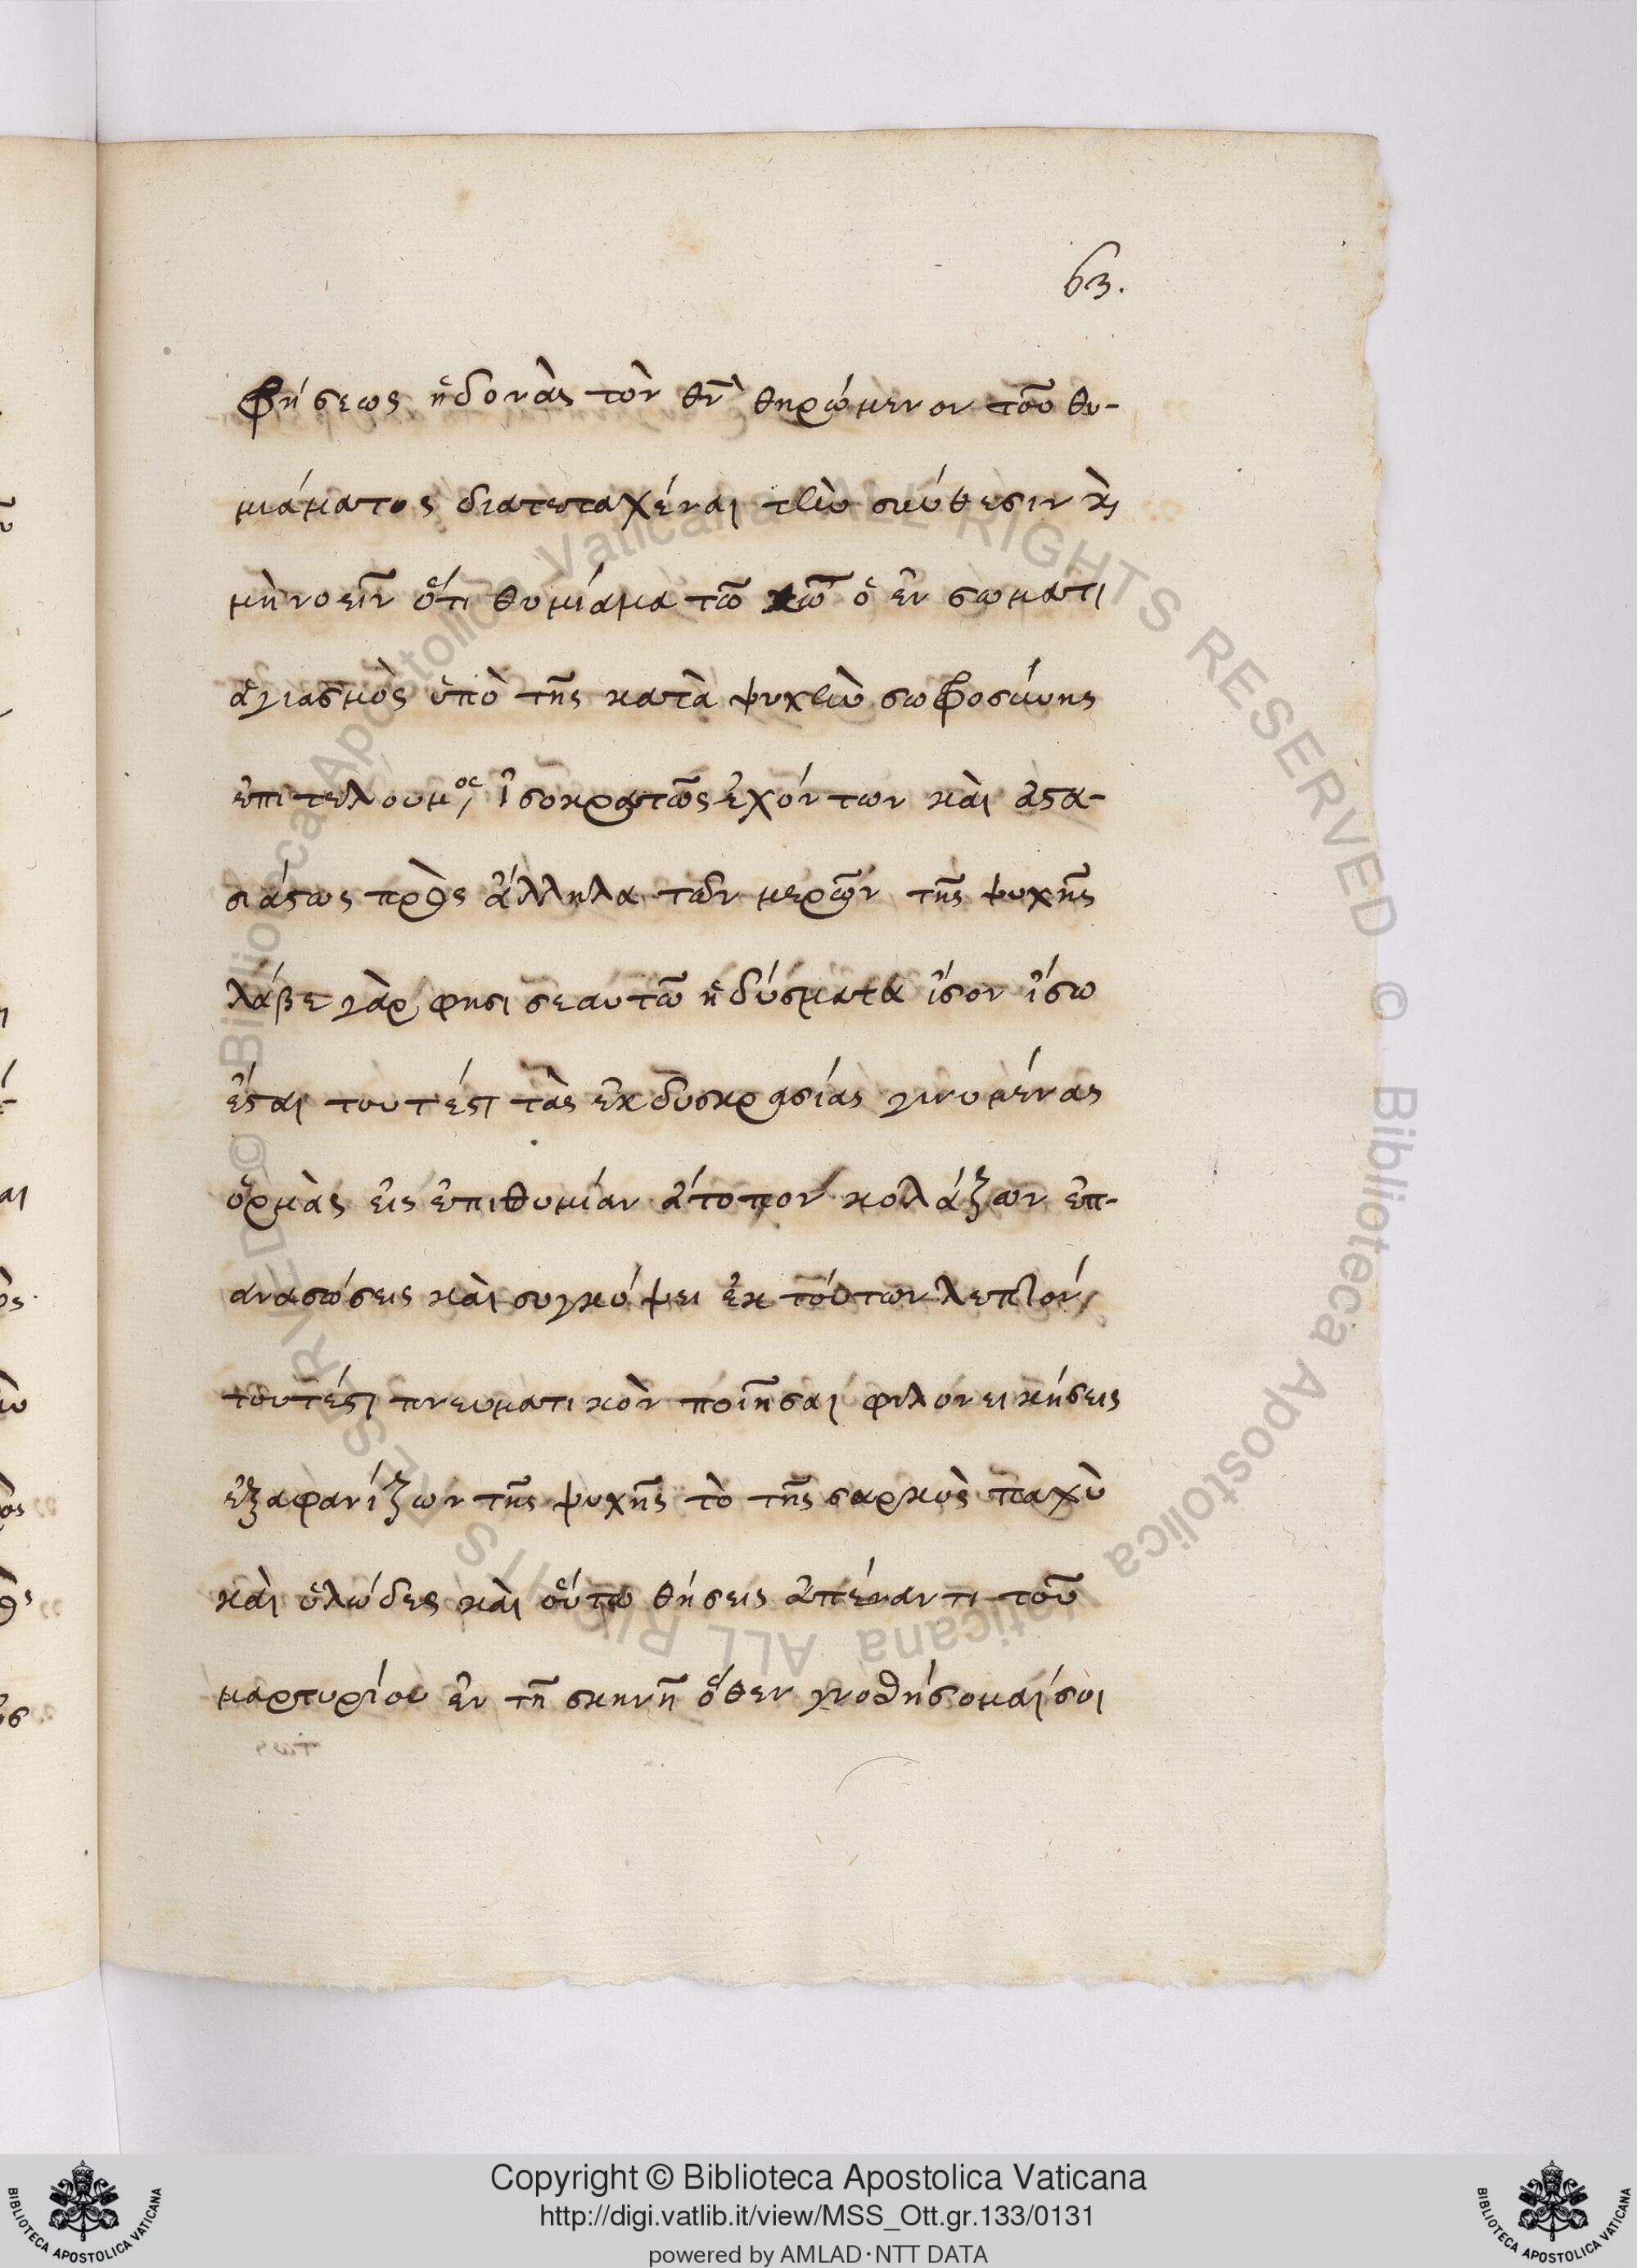 63.
φρήσεως ἡδονὰς τὸν θν̅ θηρώμενον τοῦ θυ-
μιάματος διατεταχέναι τὴν σύνθεσιν κ̀
μὴ νοεῖν ὅτι θυμίαμα τῶ κ̅ω̅ ὁ ἐν σώματι
ἁγιασμὸς ὑπὸ τῆς κατὰ ψυχὴν σωφροσύνης
ἐπιτελουμος, ἰσοκρατῶς ἐχόντων καὶ ἀστα-
σιάστως πρὸς ἄλληλα τῶν μερῶν τῆς ψυχῆς
λάβε γὰρ φησι σεαυτῶ ἡδύσματα ἴσον ἴσω
ἔσται τουτέστι τὰς ἐκ δυσκρασίας γινομένας
ὁρμὰς εἰς ἐπιθυμίαν ἄτοπον κολάζων ἐπ-
ανασώσεις καὶ συγκόψει ἐκ τούτων λεπτόν,
τουτέστι πνευματικὸν ποιῆσαι φιλονεικήσεις
ἐξαφανίζων τῆς ψυχῆς τὸ τῆς σαρκὸς παχὺ
καὶ ὑλώδες καὶ οὕτω θήσεις ἀπέναντι τοῦ
μαρτυρίου ἐν τῆ σκηνῆ ὅθεν γνωθήσομαί σοι
Copyright © Biblioteca Apostolica Vaticana
http://digi.vatlib.it/view/MSS_Ott.gr.133/0131
powered by AMLAD·NTT DATA